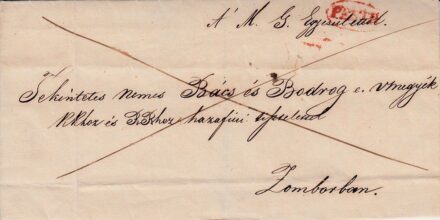 A' M. G. Egyesülettől.
PESTH
Tekintetes Nemes Bács és Bodrog e. Vmegyék
KKhoz és RRhez hazafiúi tisztelettel
Zomborban.